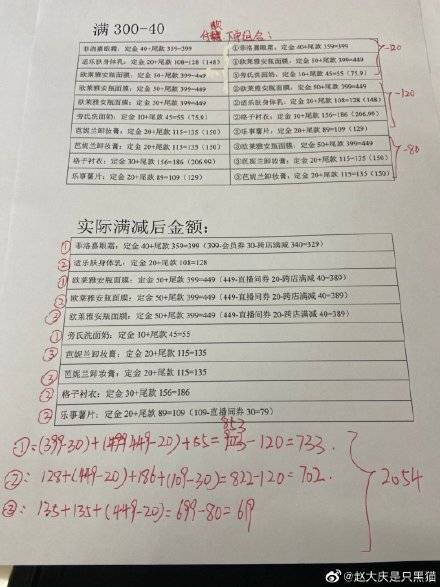 满 300-40
付款 下单组合:
菲洛嘉眼霜: 定金 40+尾款 359=399 ①菲洛嘉眼霜: 定金 40+尾款 359=399
适乐肤身体乳: 定金 20+尾款 108=128 (148) ①欧莱雅安瓶面膜: 定金 50+尾款 399=449
欧莱雅安瓶面膜: 定金 50+尾款 399=449 ①旁氏洗面奶: 定金 10+尾款 45=55 (75.9)
-120
欧莱雅安瓶面膜: 定金 50+尾款 399=449 ②欧莱雅安瓶面膜: 定金 50+尾款 399=449
欧莱雅安瓶面膜: 定金 50+尾款 399=449 ②适乐肤身体乳: 定金 20+尾款 108=128 (148)
旁氏洗面奶: 定金 10+尾款 45=55 (75.9) ②格子衬衣: 定金 30+尾款 156=186 (206.99)
芭妮兰卸妆膏: 定金 20+尾款 115=135 (150) ②乐事薯片: 定金 20+尾款 89=109 (129)
-120
芭妮兰卸妆膏: 定金 20+尾款 115=135 (150) ③欧莱雅安瓶面膜: 定金 50+尾款 399=449
格子衬衣: 定金 30+尾款 156=186 (206.99) ③芭妮兰卸妆膏: 定金 20+尾款 115=135 (150)
乐事薯片: 定金 20+尾款 89=109 (129) ③芭妮兰卸妆膏: 定金 20+尾款 115=135 (150)
-80
实际满减后金额:
① 菲洛嘉眼霜: 定金 40+尾款 359=399 (399-会员券 30-跨店满减 340=329)
② 适乐肤身体乳: 定金 20+尾款 108=128
① 欧莱雅安瓶面膜: 定金 50+尾款 399=449 (449-直播间券 20-跨店满减 40=389)
② 欧莱雅安瓶面膜: 定金 50+尾款 399=449 (449-直播间券 20-跨店满减 40=389)
欧莱雅安瓶面膜: 定金 50+尾款 399=449 (449-直播间券 20-跨店满减 40=389)
① 旁氏洗面奶: 定金 10+尾款 45=55
③ 芭妮兰卸妆膏: 定金 20+尾款 115=135
③ 芭妮兰卸妆膏: 定金 20+尾款 115=135
② 格子衬衣: 定金 30+尾款 156=186
② 乐事薯片: 定金 20+尾款 89=109 (109-直播间券 30=79)
853
①=(399-30)+(449-20)+55= -120=733.
②: 128+(449-20)+186+(109-30)=822-120=702.
③: 135+135+(449-20)=699-80=619
2054
@赵大庆是只黑猫